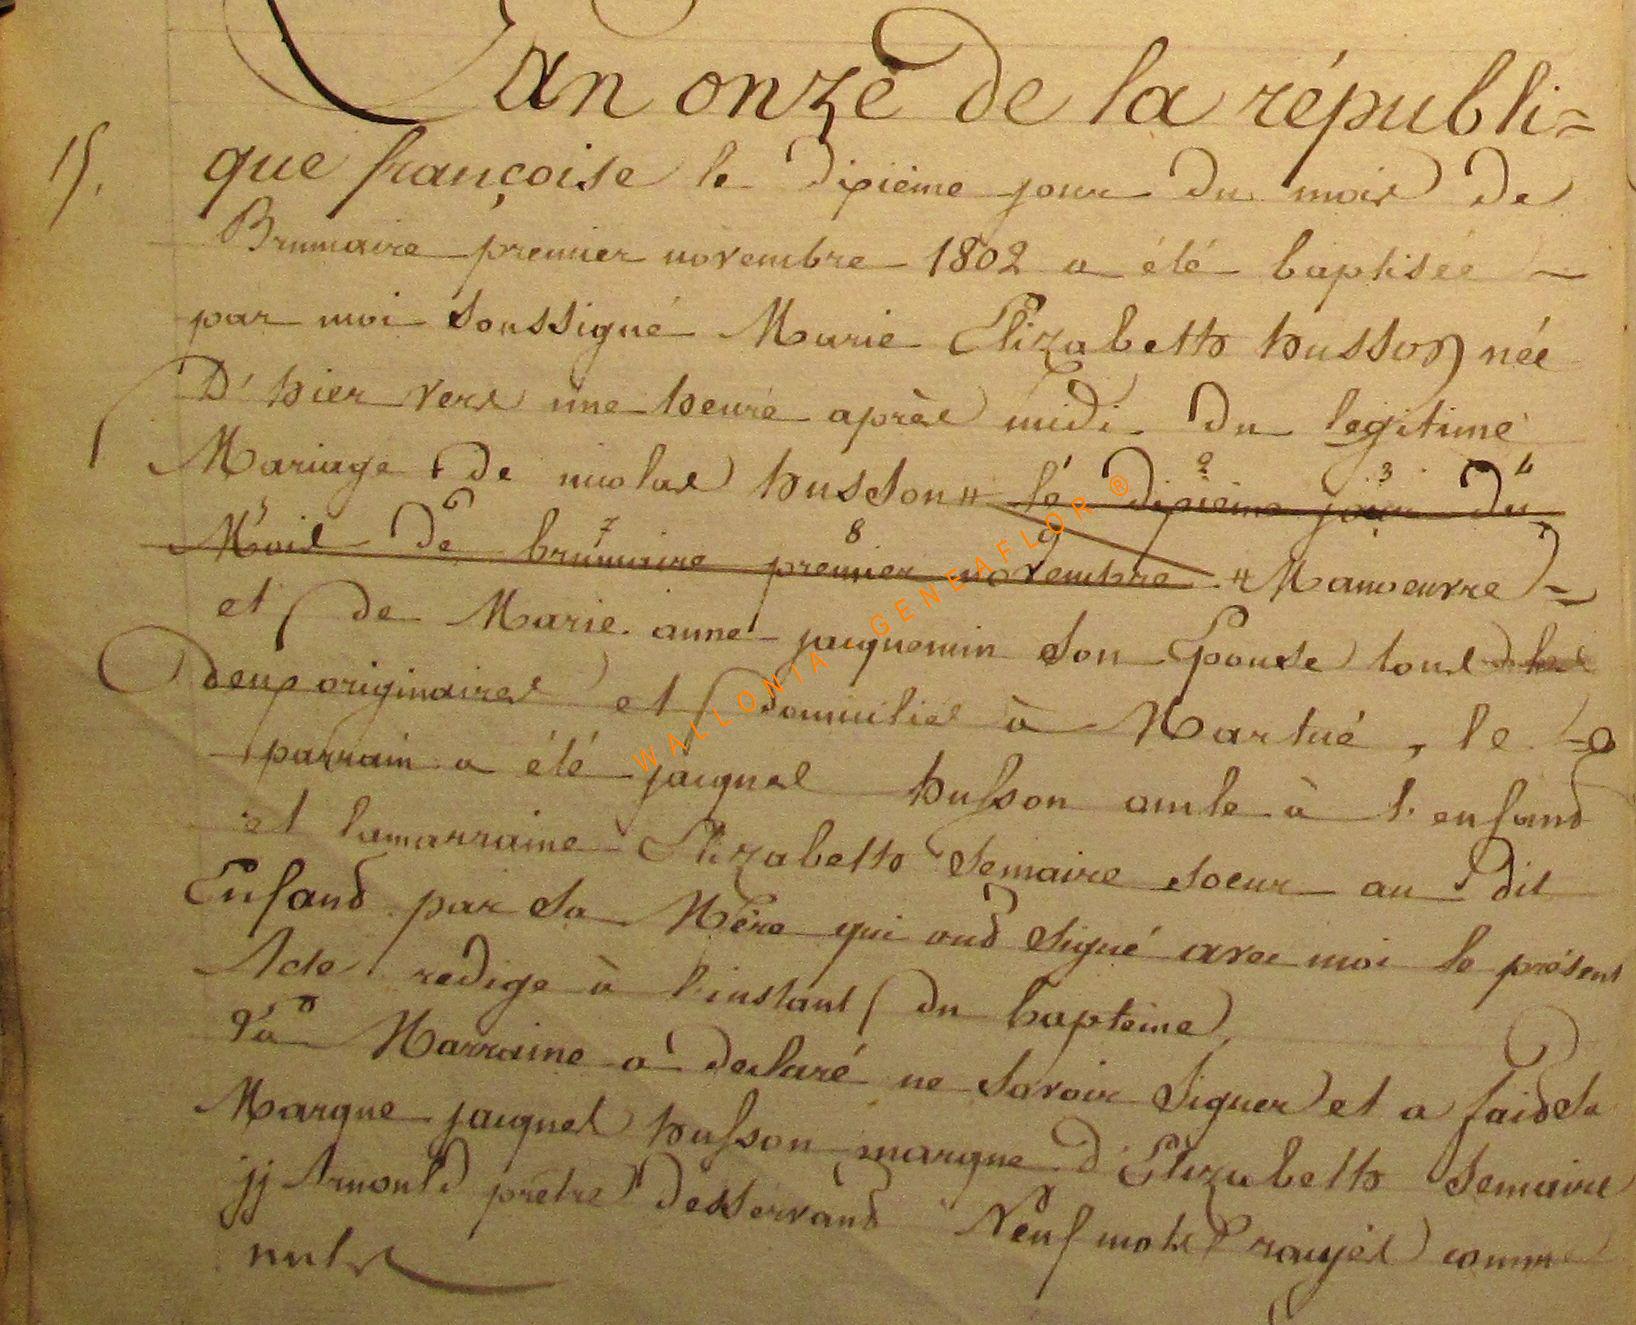 L'an onze de la républi=
15. que françoise le dixième jour du mois de
Brumaire premier novembre 1802 a été baptisée
par moi soussigné Marie Elizabeth husson née
D'hier vers une heure après midi du legitime
Mariage de nicolas husson # le 2 dixième 3 jour 4 du
5 Mois 6 de 7 brumaire 8 premier 9 novembre # Manoeuvre =
et de Marie anne jacquemin son Epouse tous
deux originaires et domiciliés à Martué, le
parrain a été jacques husson oncle à l'enfand
et la marraine Elizabeth Semaire soeur au dit
Enfand par sa Mère qui ond signé avec moi le présent
Acte redigé à l'instant du baptême,
La Marraine a declaré ne savoir signer et a faid sa
Marque jacques husson marque d'Elizabeth Semaire
jj Arnould prêtre desservand Neuf mots rayés comme
nuls
WALLONIA GENEAFLOR ®